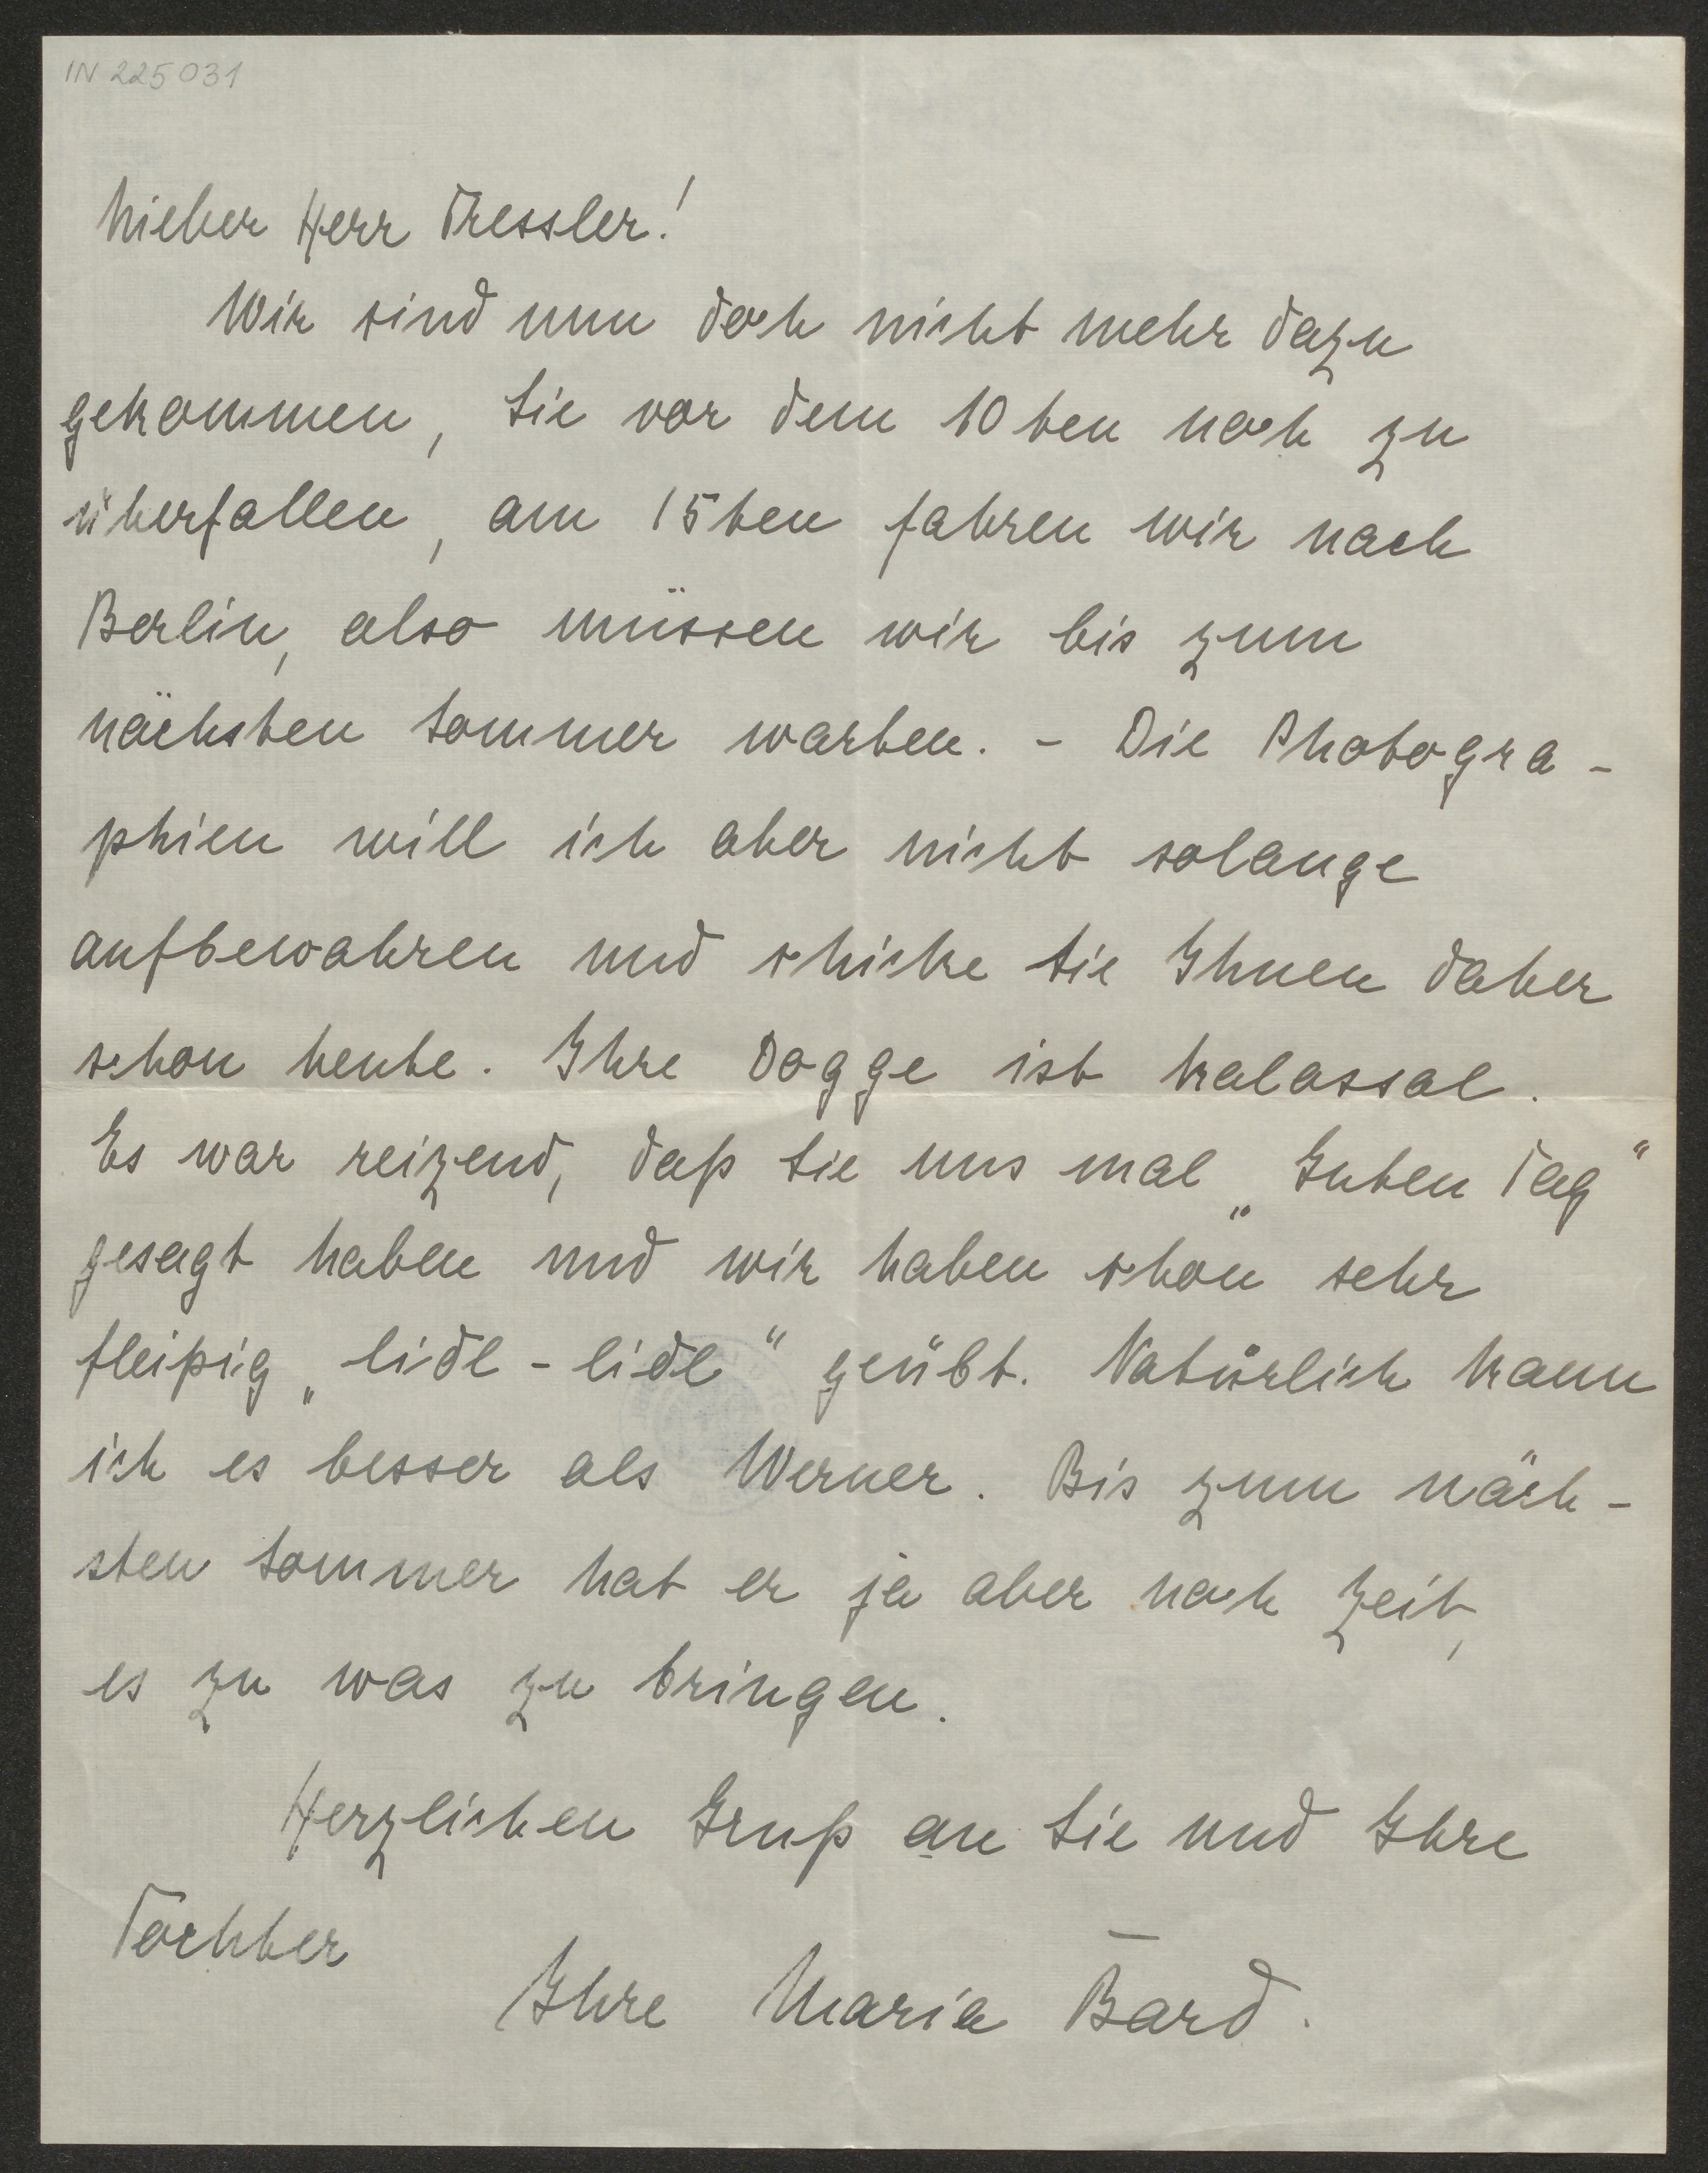 IN 225031
Lieber Herr Tressler!
Wir sind nun doch nicht mehr dazu
gekommen, Sie vor dem 10ten noch zu
überfallen, am 15ten fahren wir nach
Berlin, also müssen wir bis zum
nächsten Sommer warten. - Die Photogra-
phien will ich aber nicht solange
aufbewahren und schicke sie Ihnen daher
schon heute. Ihre Dogge ist kolossal.
Es war reizend, daß Sie uns mal „Guten Tag“
gesagt haben und wir haben schon sehr
fleißig „lidl-lidl“ geübt. Natürlich kann
ich es besser als Werner. Bis zum näch-
sten Sommer hat er ja aber noch Zeit,
es zu was zu bringen.
Herzlichen Gruß an Sie und Ihre
Tochter
Ihre Maria Bard.